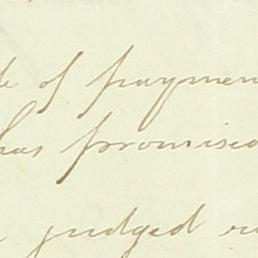 of paymen
has promised
judged